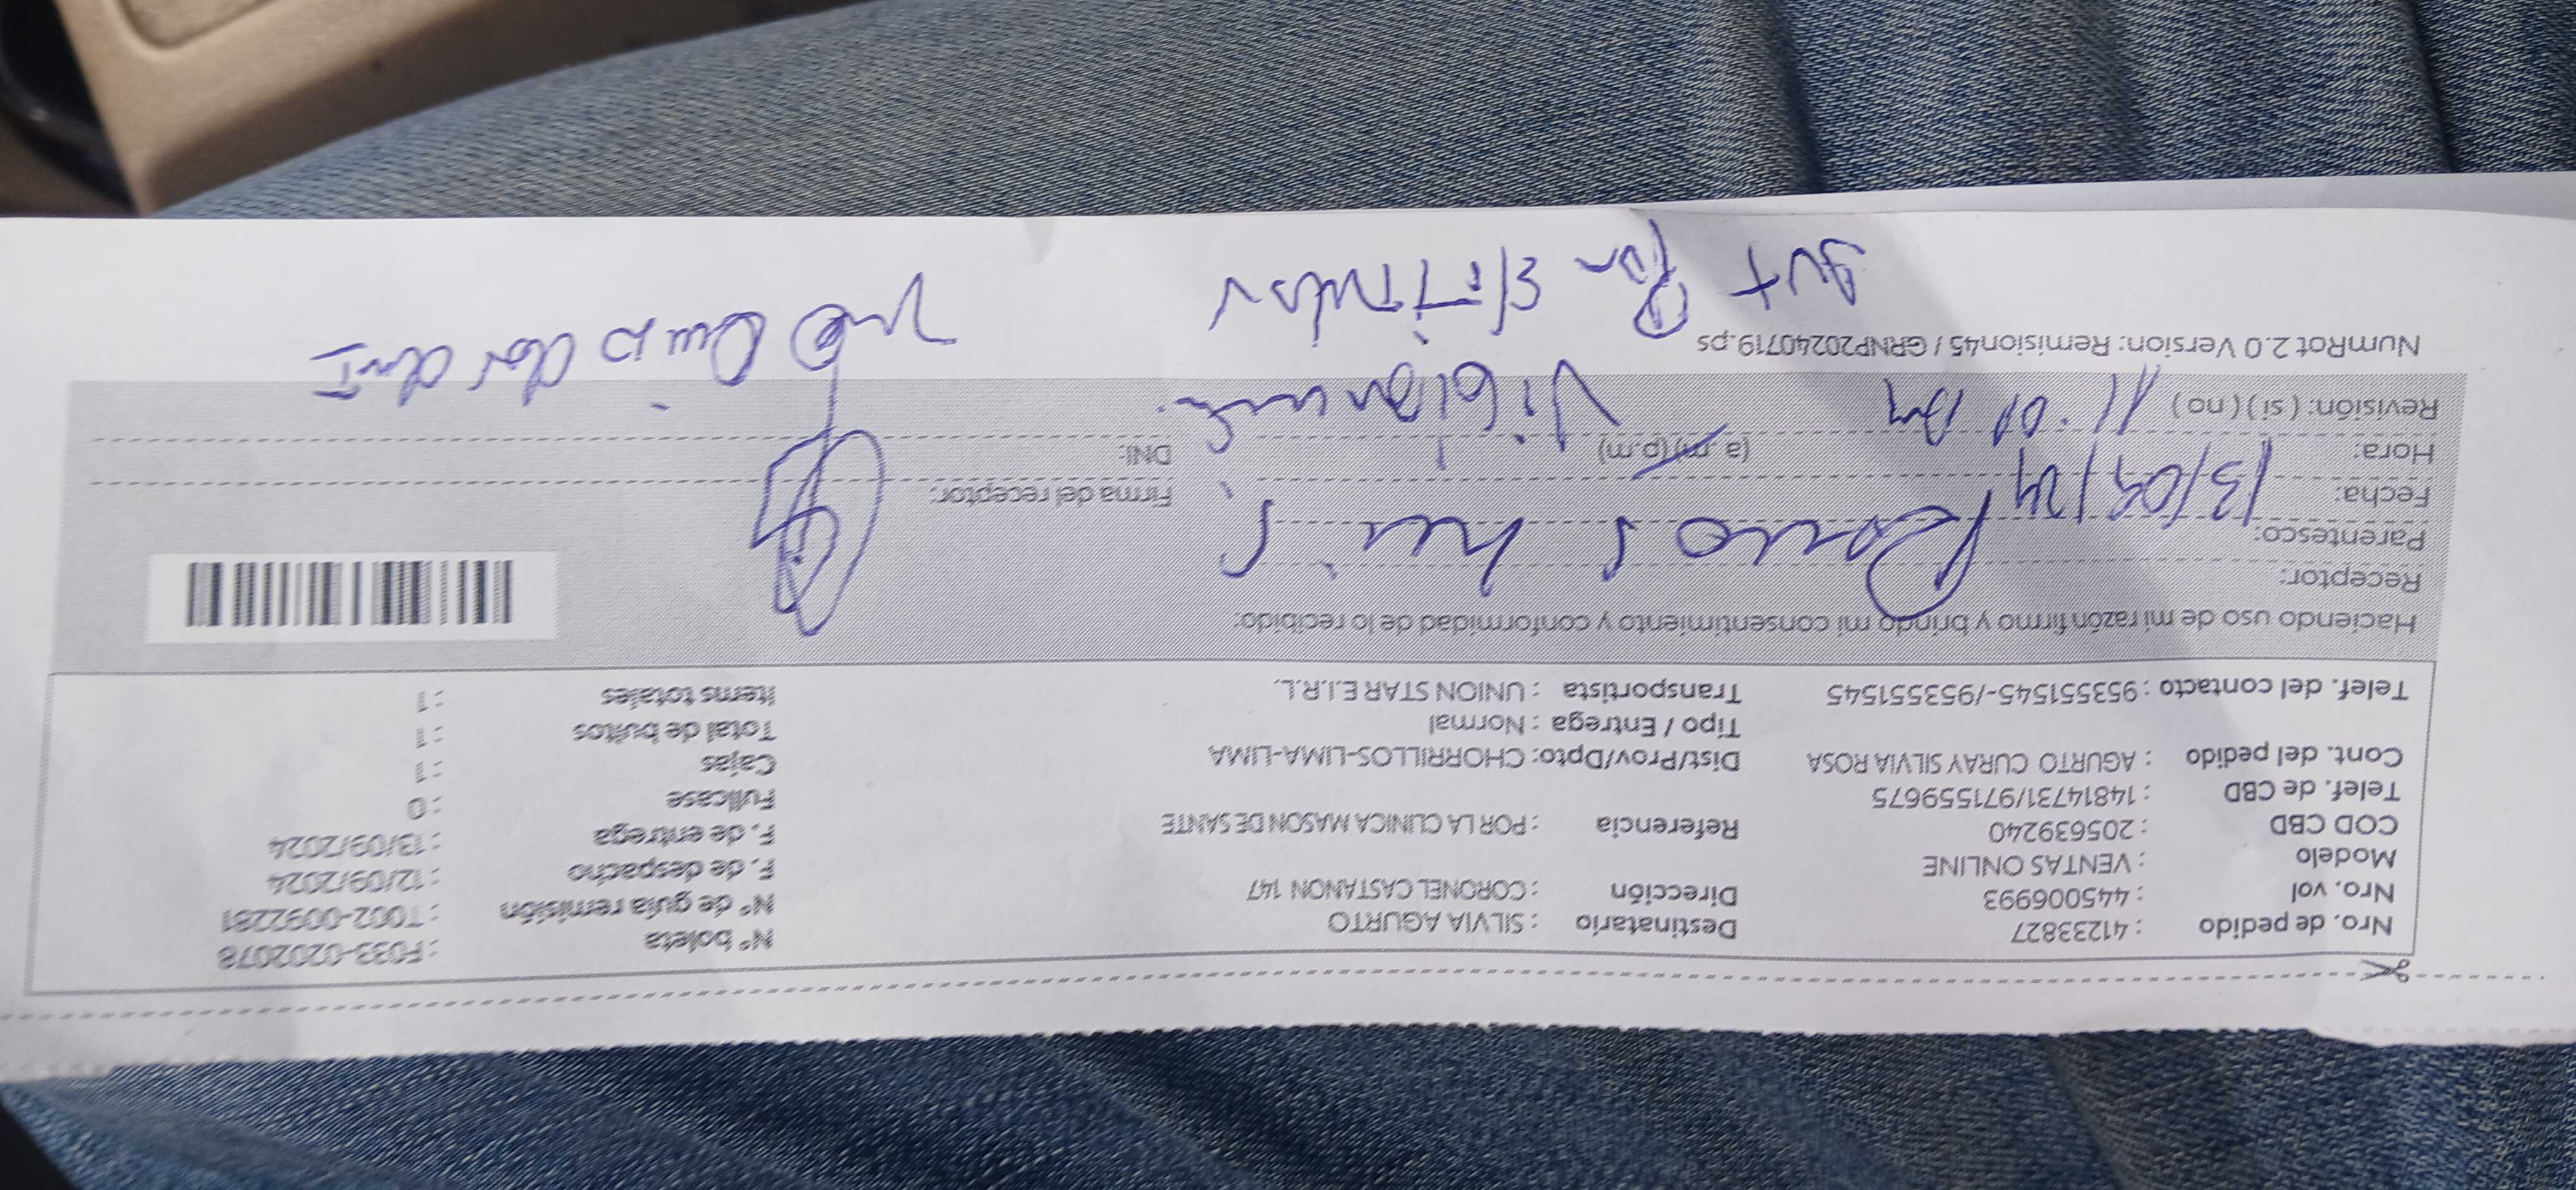 Nro. de pedido : 41233827 Destinatario : SILVIA AGURTO N° boleta : F033-0202078
Nro. vol : 445006993 Dirección : CORONEL CASTANON 147 N° de guía remisión : T002-0092281
Modelo : VENTAS ONLINE F. de despacho : 12/09/2024
COD CBD : 205639240 Referencia : POR LA CLINICA MASON DE SANTE F. de entrega : 13/09/2024
Telef. de CBD : 14814731/971559675 Fullcase : 0
Cont. del pedido : AGURTO CURAY SILVIA ROSA Dist/Prov/Dpto: CHORRILLOS-LIMA-LIMA Cajas : 1
Tipo / Entrega : Normal Total de bultos : 1
Telef. del contacto : 953551545-/953551545 Transportista : UNION STAR E.I.R.L. Items totales : 1
Haciendo uso de mi razón firmo y brindo mi consentimiento y conformidad de lo recibido:
Receptor: Ramos
Parentesco:
Fecha: 13/09/24 Firma del receptor:
Hora: (a.m) (p.m) DNI:
Revisión: (si) (no) 11:00 Am Vigilante
NumRot 2.0 Version: Remision45 / GRNP20240719.ps
Aut Por E/ Titular no dar DNI